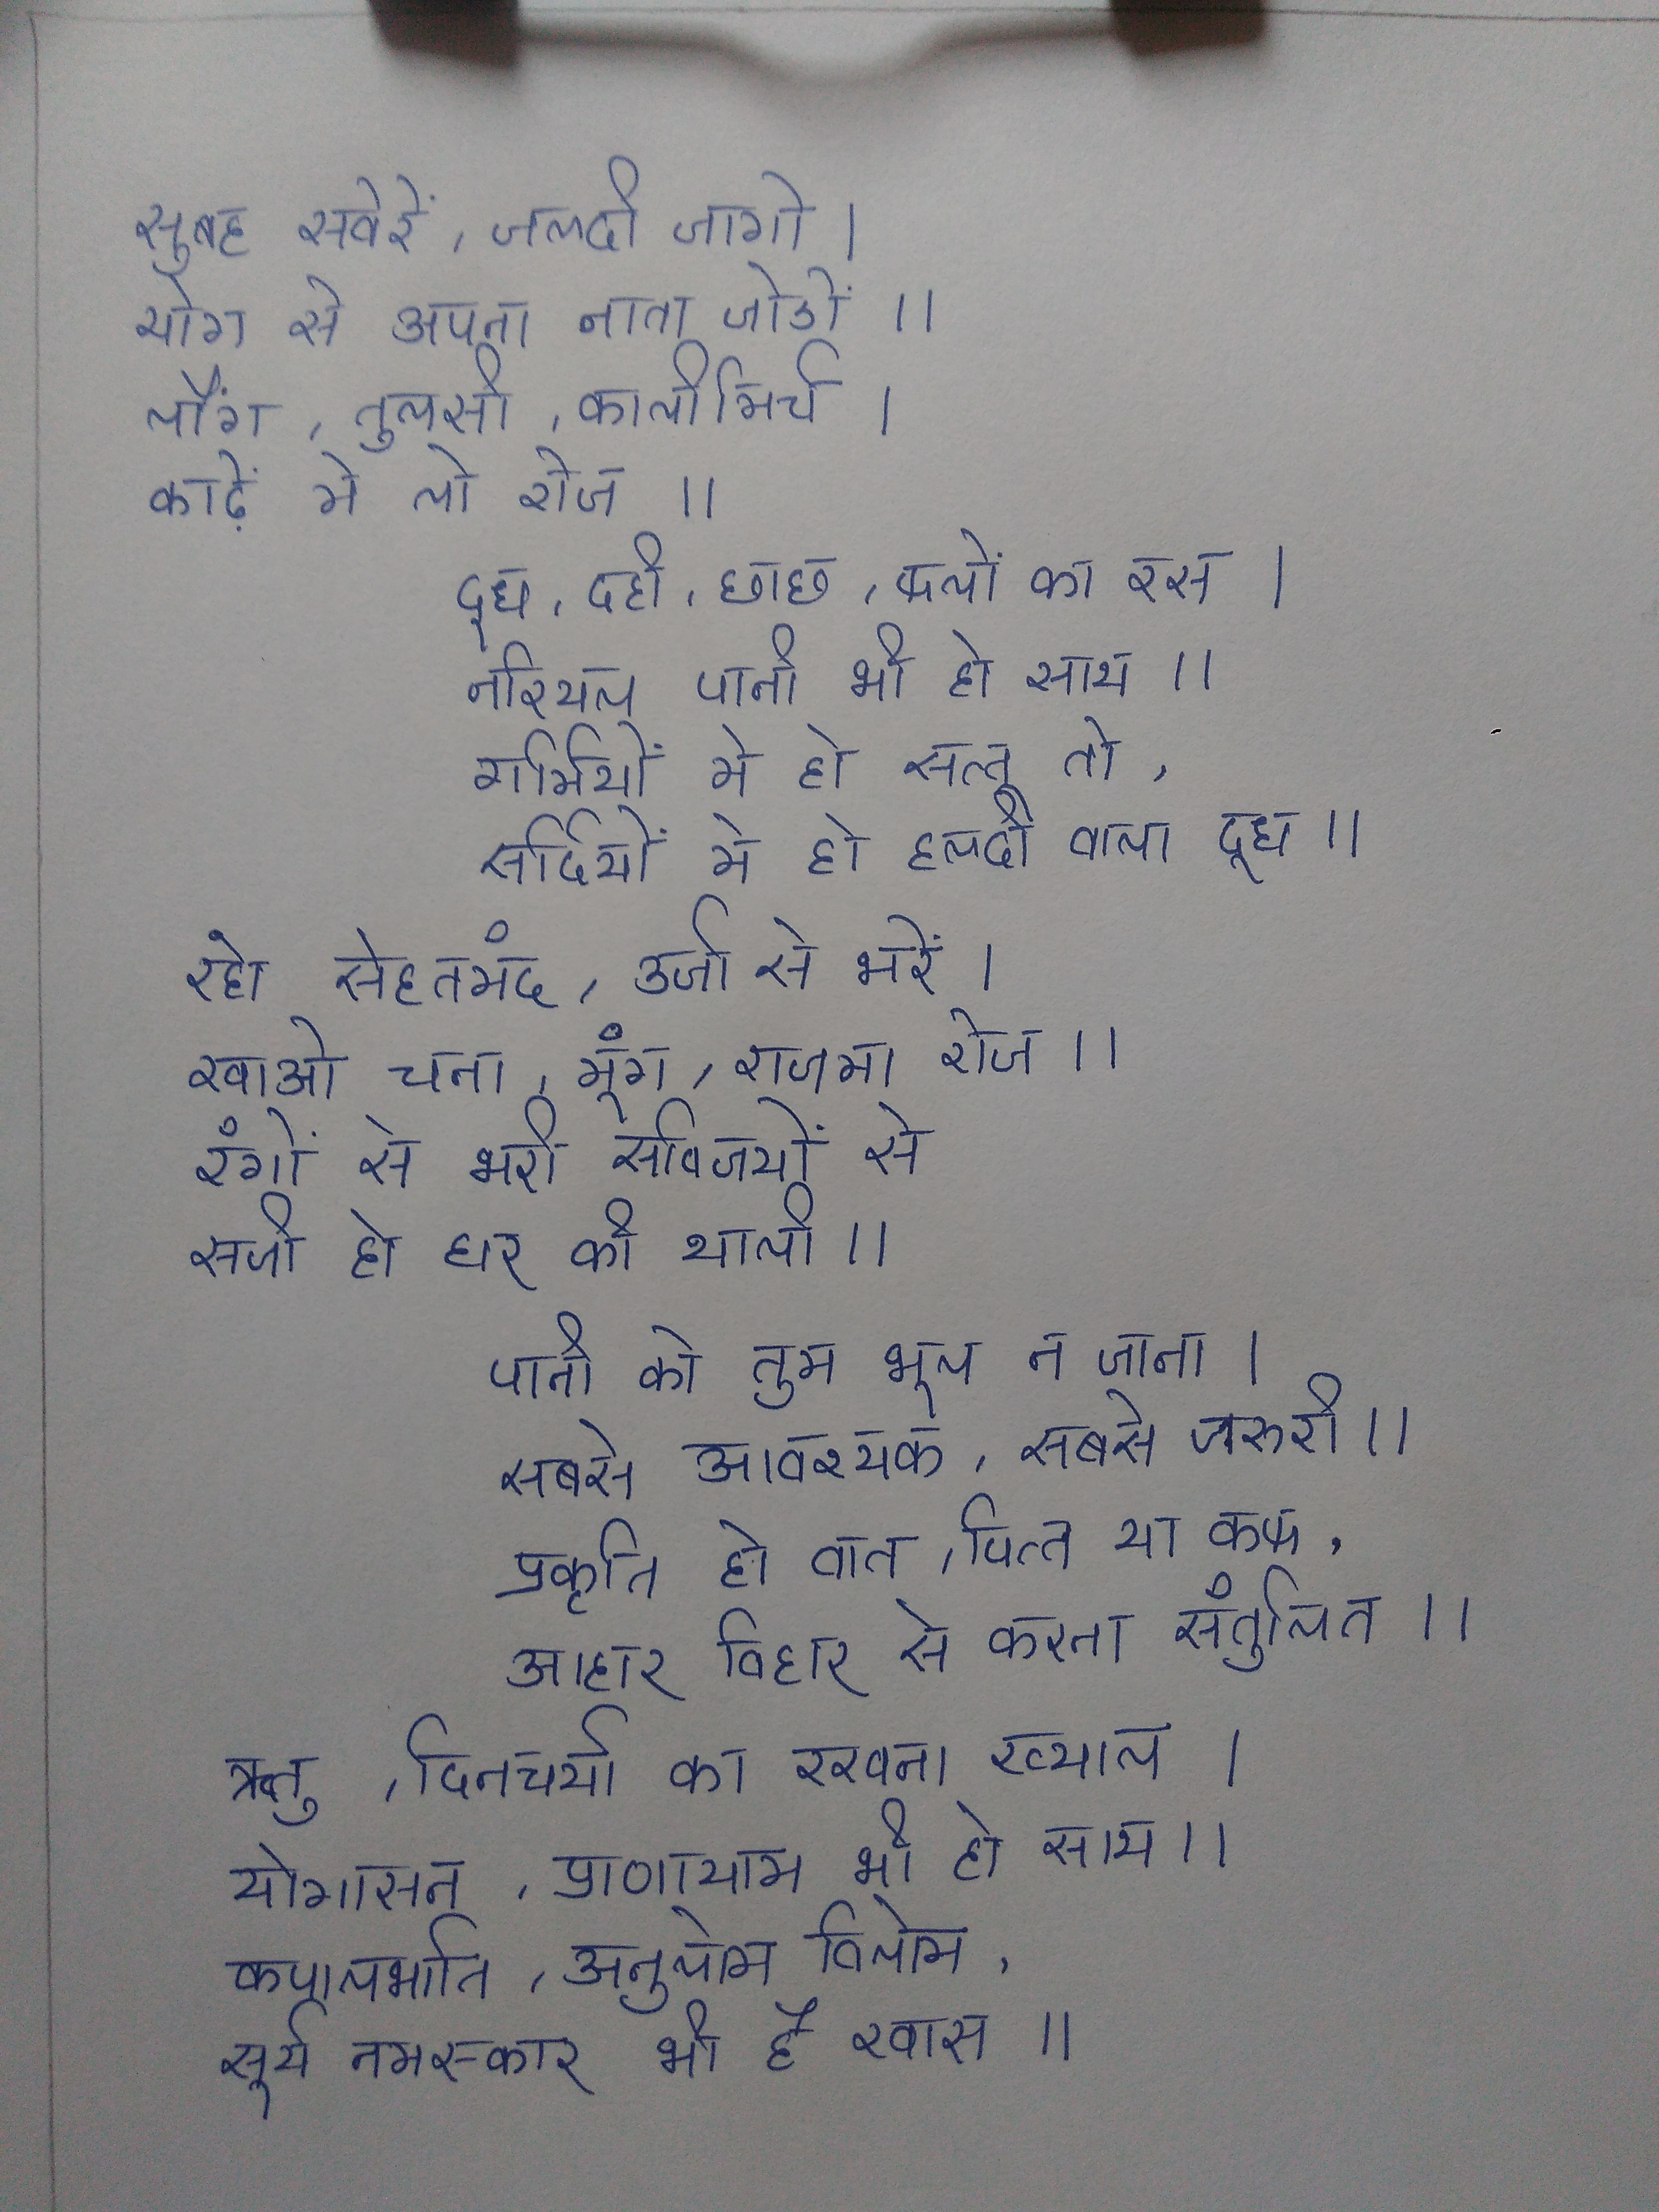 सुबह सवेरें, जलदी जागो।
योग से अपना नाता जोडों ॥
लौंग, तुलसी, कालीमिर्च ।
काढ़ें मे लो रोज ॥
दूध, दही, छाछ, फलों का रस ।
नरियल पानी भी हो साथ ॥
गर्मियों मे हो सत्तू तो,
सर्दियों मे हो हलदी वाला दूध ॥
रहो सेहतमंद, उर्जा से भरें ।
खाओ चना, मूंग, राजमा रोज ॥
रंगों से भरी सब्जियों से
सजी हो घर की थाली ॥
पानी को तुम भूल न जाना ।
सबसे आवश्यक, सबसे जरुरी ॥
प्रकृति हो वात, पित्त या कफ,
आहार विहार से करना संतुलित ॥
ऋतु, दिनचर्या का रखना ख्याल ।
योगासन, प्राणायाम भी हो साथ ॥
कपालभाति, अनुलोम विलोम,
सूर्य नमस्कार भी है खास ॥